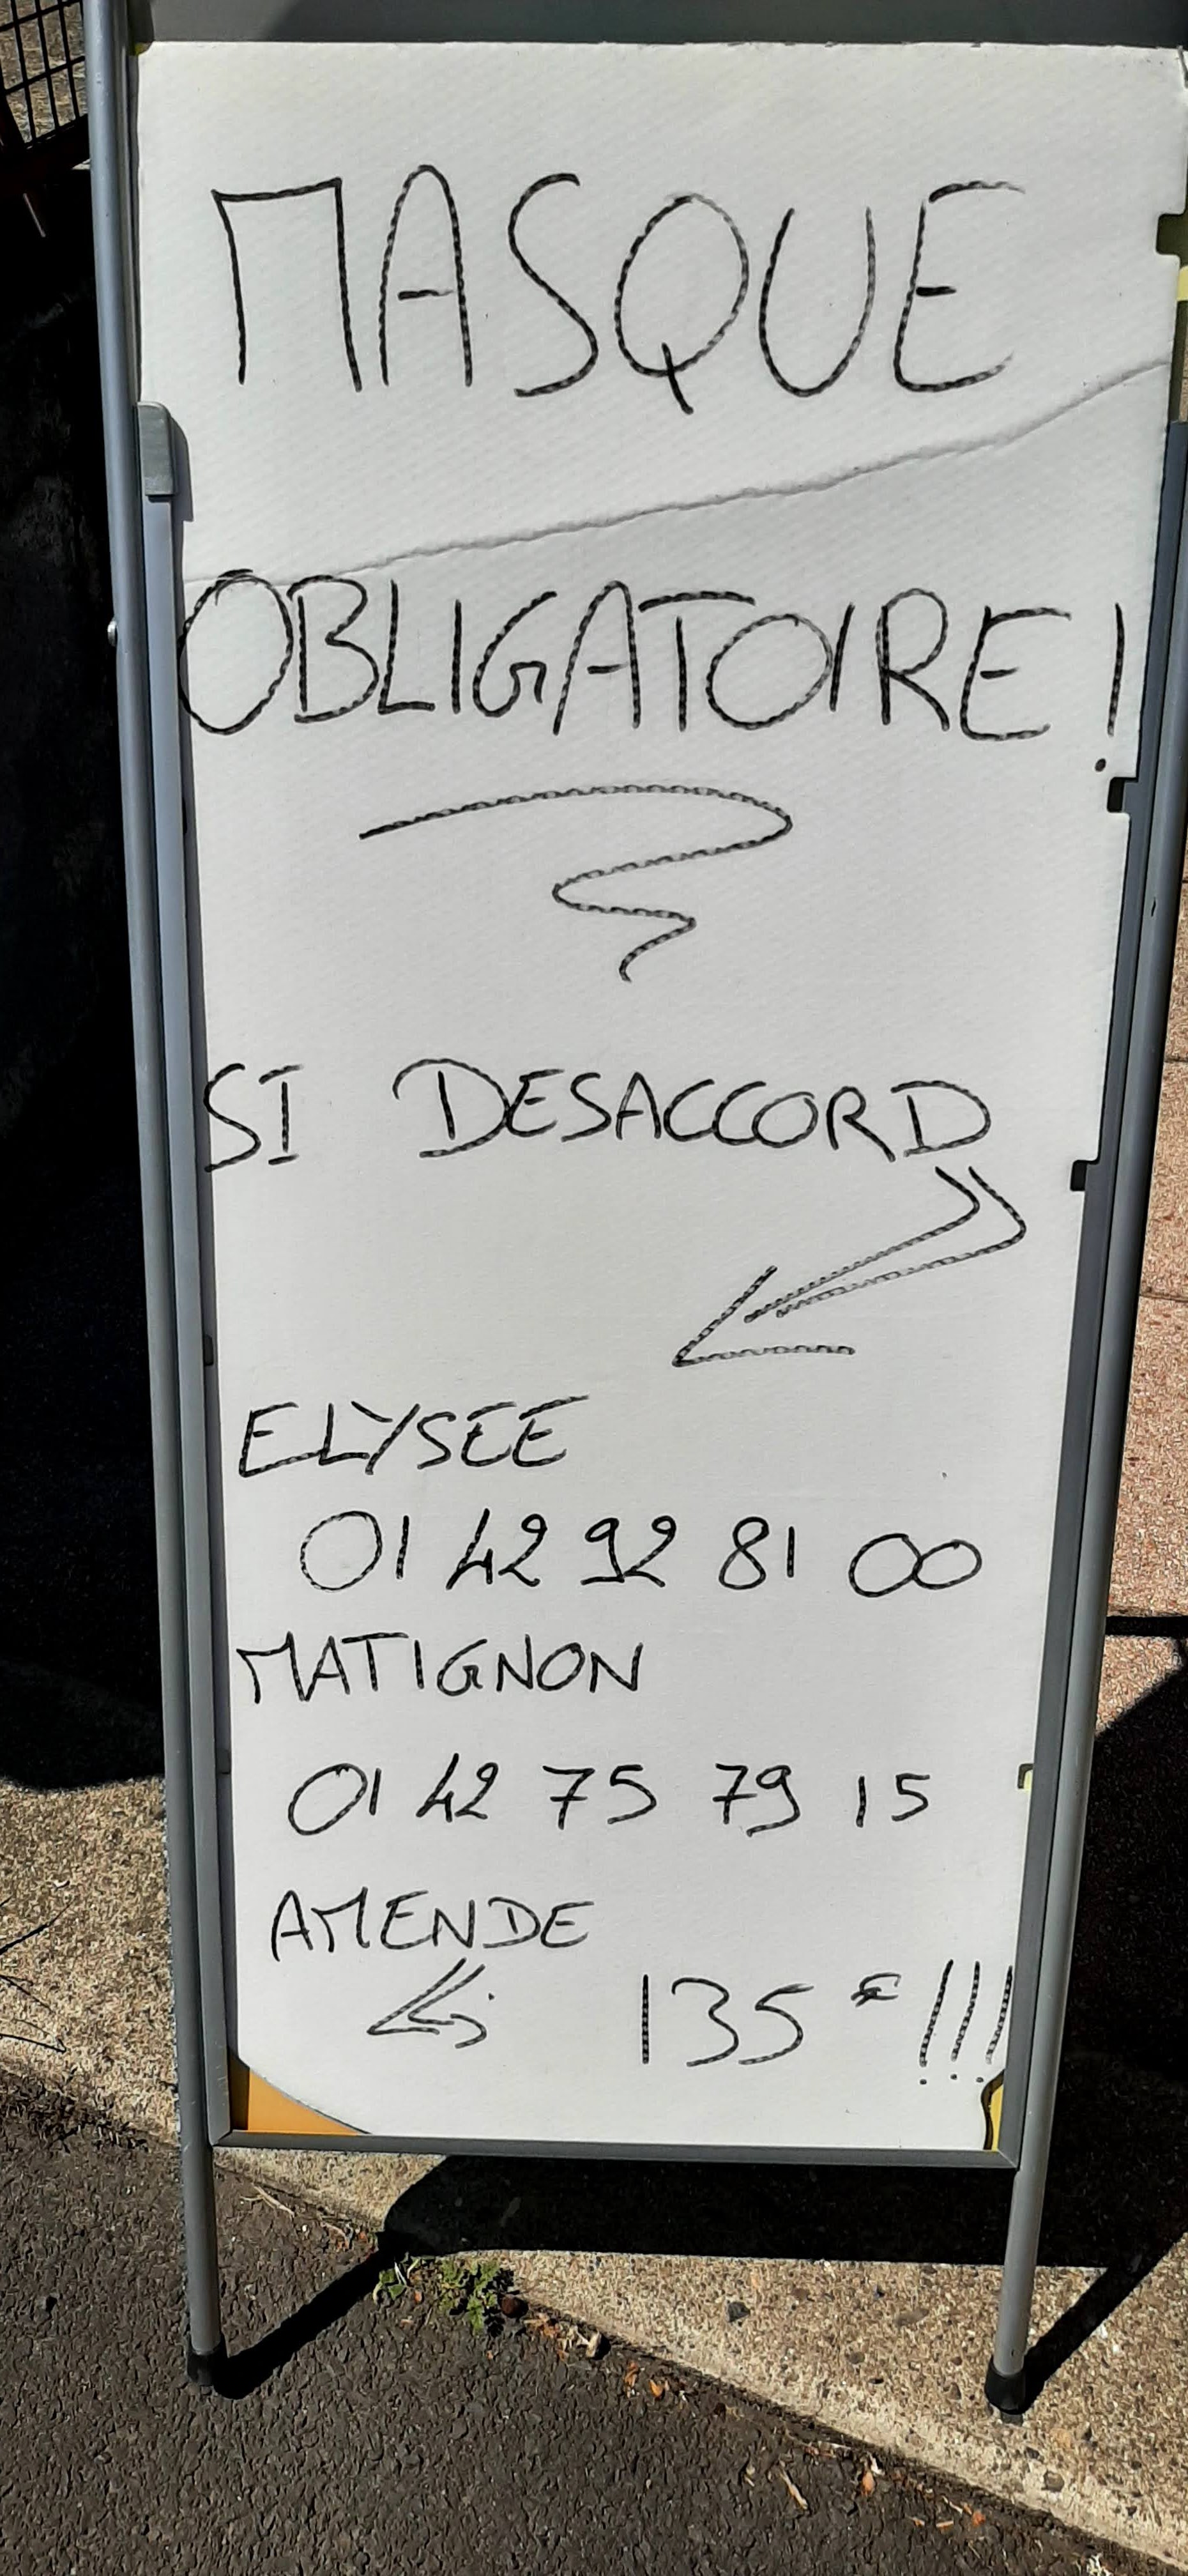 MASQUE
OBLIGATOIRE !
SI DESACCORD
ELYSEE
01 42 92 81 00
MATIGNON
01 42 75 79 15
AMENDE
135 € !!!